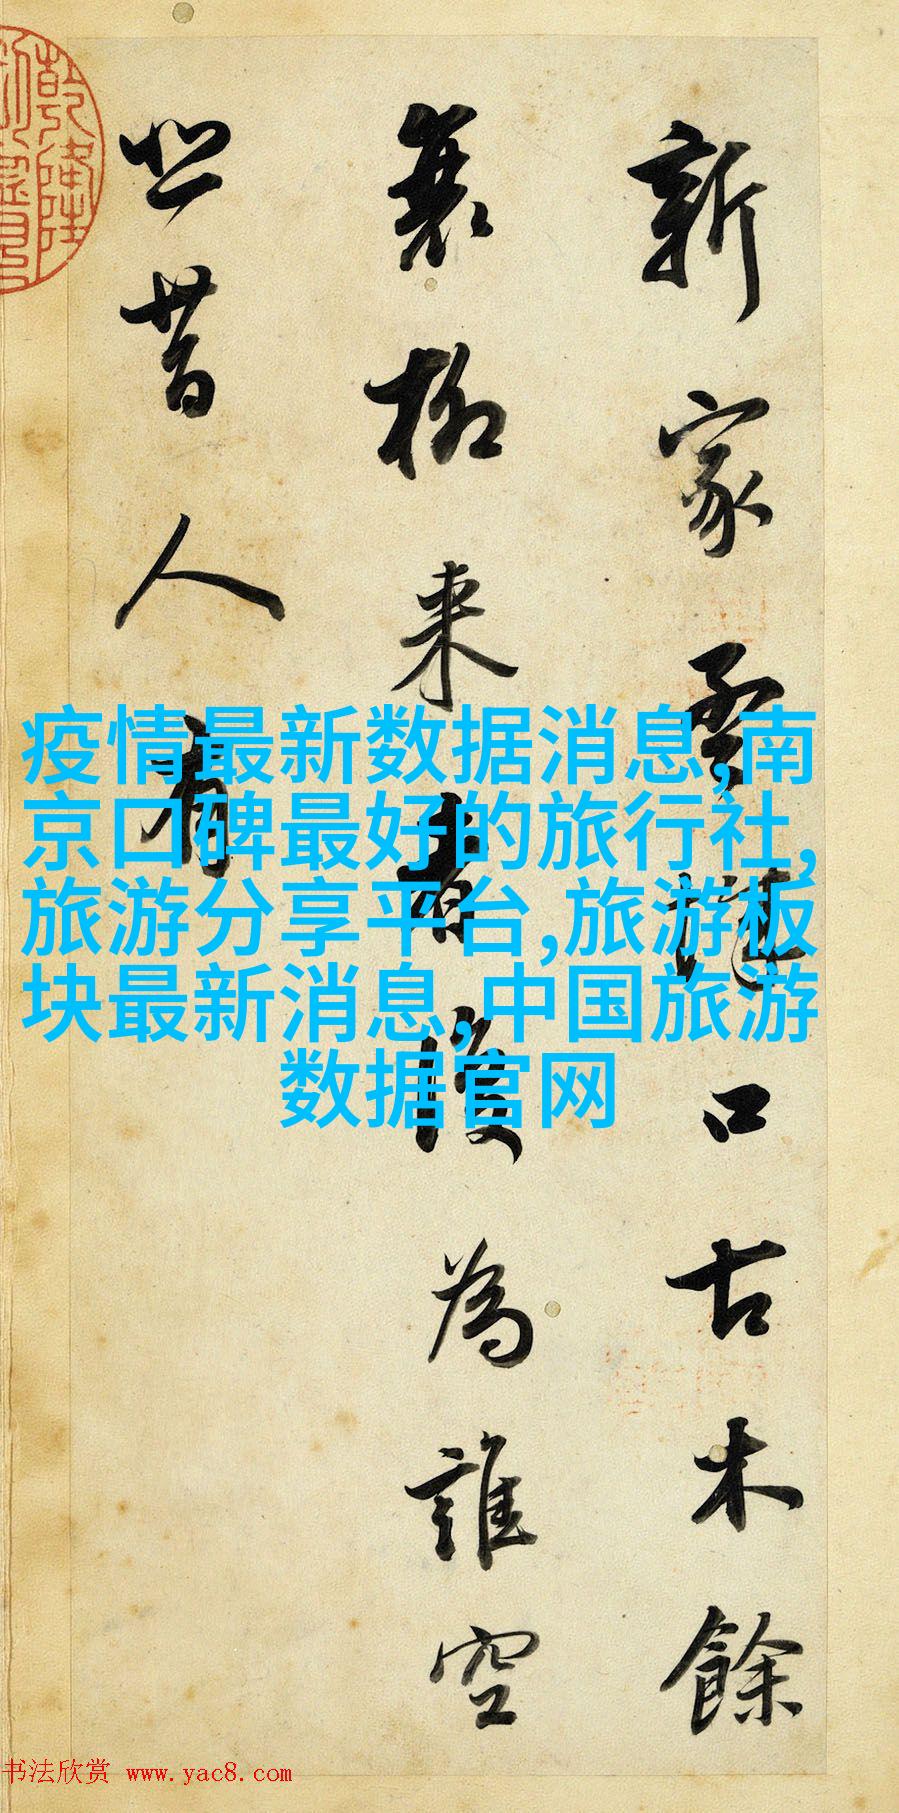 新家孟城口古木餘
衰柳来者復為誰空
悲昔人有
疫情最新数据消息,南
京口碑最好的旅行社,
旅游分享平台,旅游板
块最新消息,中国旅游
数据官网
书法欣赏 www.yac8.com